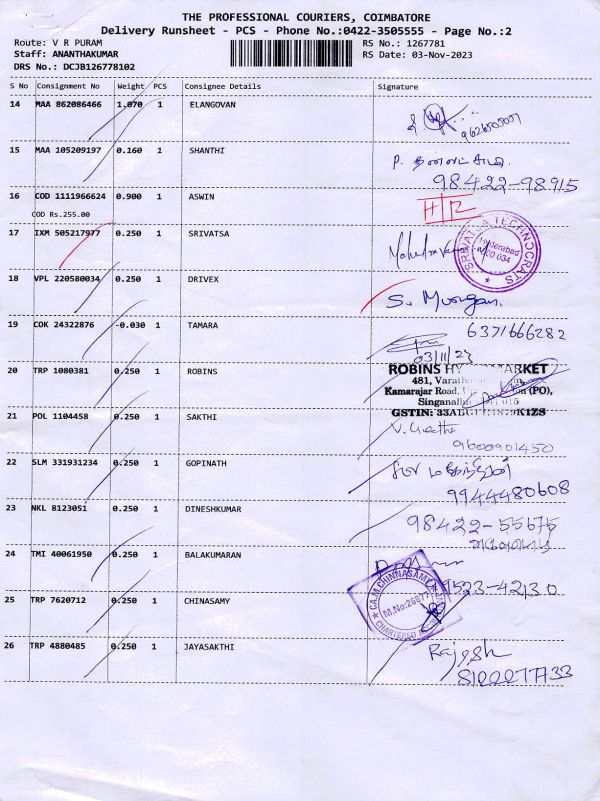 THE PROFESSIONAL COURIERS, COIMBATORE
Delivery Runsheet - PCS - Phone No.:0422-3505555 - Page No.:2
Route: V R PURAM RS No.: 1267781
Staff: ANANTHAKUMAR RS Date: 03-Nov-2023
DRS No.: DCJB126778102
S No Consignment No Weight PCS Consignee Details Signature
14 MAA 862086466 1.070 1 ELANGOVAN
15 MAA 105209197 0.160 1 SHANTHI
P.
98422-98915
16 COD 1111966624 0.900 1 ASWIN
COD Rs.255.00
17 IXM 505217977 0.250 1 SRIVATSA
SRIVATSA TECHNOCRATS
Hyderabad
18 VPL 220580034 0.250 1 DRIVEX
S. Murugan.
19 COK 24322876 -0.030 1 TAMARA
6371666282
03/11/23
20 TRP 1080381 0.250 1 ROBINS
ROBINS HY MARKET
481, Varath
Kamarajar Road, (PO),
Singanall 015
GSTIN:
21 POL 1104458 0.250 1 SAKTHI
9600901450
22 SLM 331931234 0.250 1 GOPINATH
9944480608
23 NKL 8123051 0.250 1 DINESHKUMAR
98422-55675
24 TMI 40061950 0.250 1 BALAKUMARAN
25 TRP 7620712 0.250 1 CHINASAMY
CA.M.CHINNASAMY
M.No:
CHARTERED
26 TRP 4880485 0.250 1 JAYASAKTHI
Rajesh